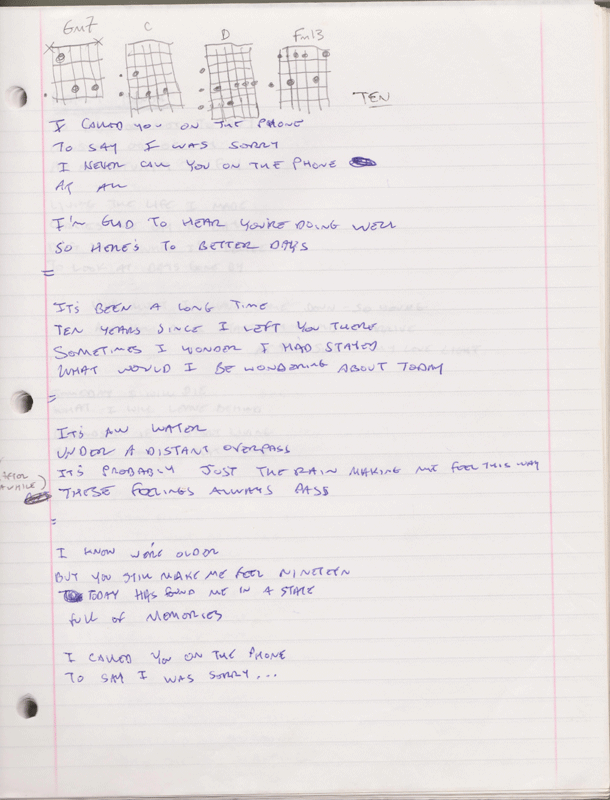 Gm7 C D Fm13
TEN
I CALLED YOU ON THE PHONE
TO SAY I WAS SORRY
I NEVER CALL YOU ON THE PHONE
AT ALL
I'M GLAD TO HEAR YOU'RE DOING WELL
SO HERE'S TO BETTER DAYS
=
IT'S BEEN A LONG TIME
TEN YEARS SINCE I LEFT YOU THERE
SOMETIMES I WONDER I HAD STAYED
WHAT WOULD I BE WONDERING ABOUT TODAY
=
IT'S ALL WATER
UNDER A DISTANT OVERPASS
IT'S PROBABLY JUST THE RAIN MAKING ME FEEL THIS WAY
(AFTER AWHILE) THESE FEELINGS ALWAYS PASS
=
I KNOW WE'RE OLDER
BUT YOU STILL MAKE ME FEEL NINETEEN
TODAY HAS FOUND ME IN A STATE
FULL OF MEMORIES
I CALLED YOU ON THE PHONE
TO SAY I WAS SORRY...